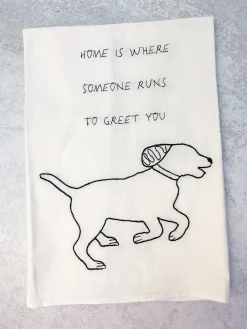 HOME IS WHERE
SOMEONE RUNS
TO GREET YOU